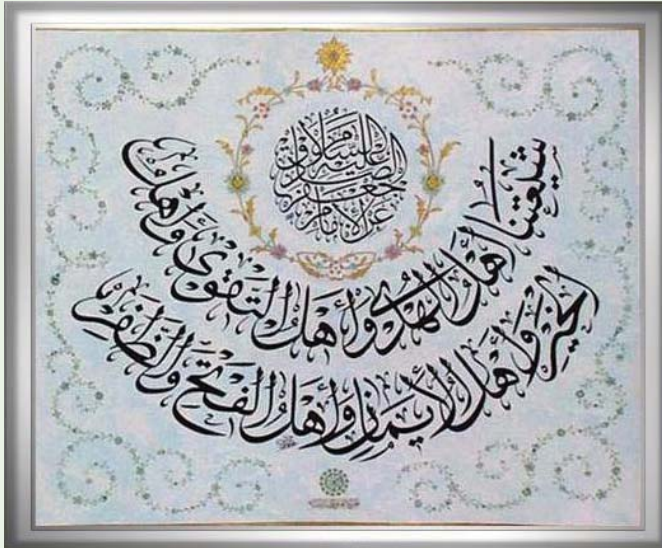 عن الإمام
جعفر
الصادق
عليه السلام
شيعتنا أهل الهدى وأهل التقوى وأهل
الخير وأهل الإيمان وأهل الفتح والظفر